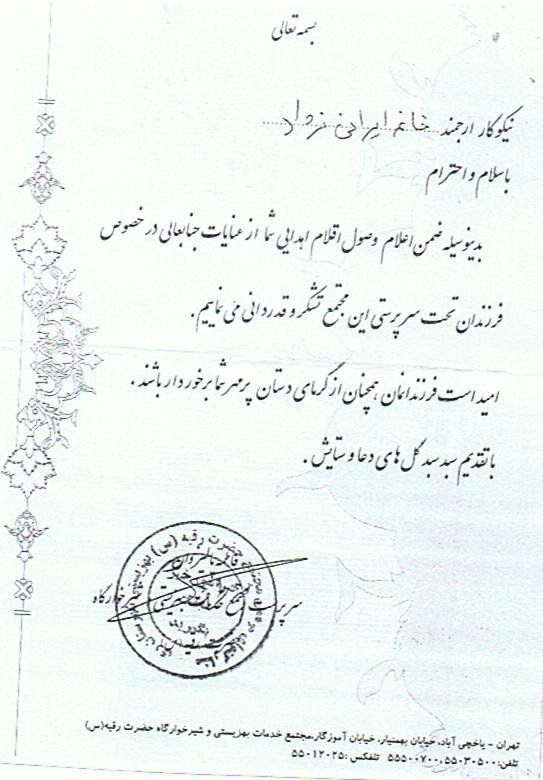 بسمه تعالی
نیکوکار ارجمند خانم ایرانی نژاد
باسلام و احترام
بدینوسیله ضمن اعلام وصول اقلام اهدایی شما از عنایات جنابعالی در خصوص
فرزندان تحت سرپرستی این مجتمع تشکر و قدردانی می نماییم .
امید است فرزندانمان همچنان از گرمای دستان پرمهر شما برخوردار باشند .
باتقدیم سبد سبد گل های دعا و ستایش .
حضرت رقیه (س)
سرپرست مجتمع خدمات بهزیستی شیرخوارگاه
تهران - یاخچی آباد، خیابان بهمنیار، خیابان آموزگار،مجتمع خدمات بهزیستی و شیرخوارگاه حضرت رقیه(س)
تلفن:۵۵۰۳۰۵۰۰-۵۵۵۰۰۷۰۰ تلفکس :۵۵۰۱۲۰۲۵